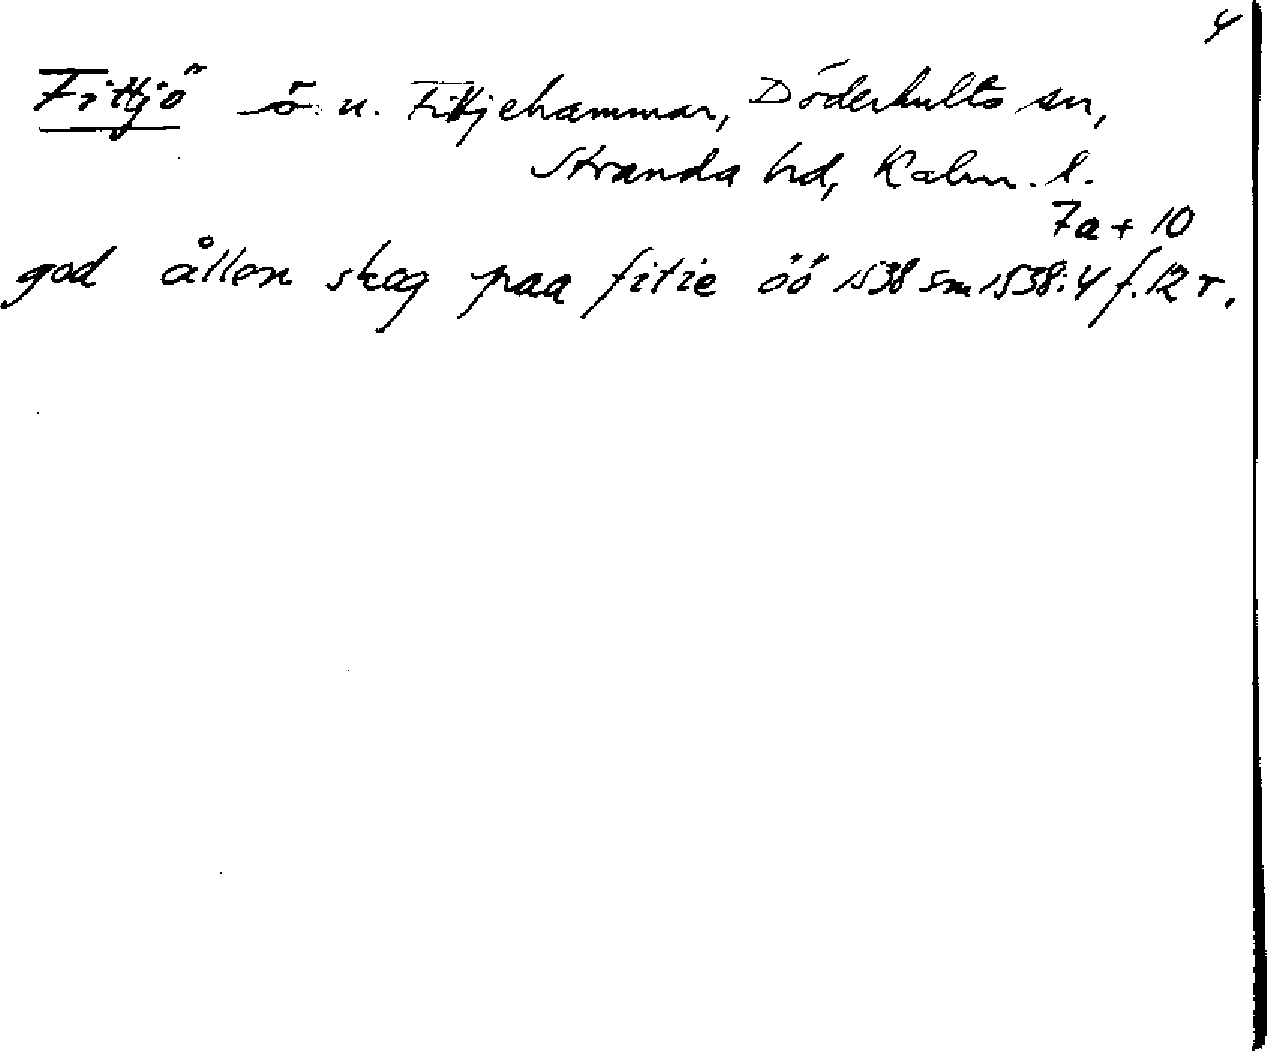 4
Fittjö ö u. Fittjehammar, Döderhults sn,
Stranda hd, Kalm. l.
7a + 10
god ållon skog paa fitie öö 1538 Sm 1538:4 f. 12 r.